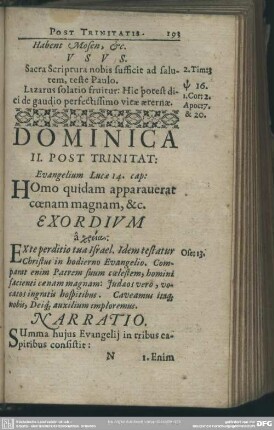 POST TRINITATIS. 193
Habent Mosen, &c.
VSVS.
Sacra Scriptura nobis sufficit ad salu-
tem, teste Paulo.
2. Tim: 3
Lazarus solatio fruitur: Hic potest di-
ci de gaudio perfectissimo vitæ æternæ.
ψ 16.
1. Cor: 2.
Apoc: 7.
& 20.
DOMINICA
II. POST TRINITAT:
Evangelium Lucæ 14. cap:
Homo quidam apparauerat
cœnam magnam, &c.
EXORDIVM
Ex te perditio tua Israel. Idem testatur
Ose: 13.
Christus in hodierno Evangelio. Com-
parat enim Patrem suum cœlestem, homini
facienti cœnam magnam: Judæos verò, vo-
catos ingratis hospitibus. Caveamus itaq;
nobis, Deiq; auxilium imploremus.
NARRATIO.
Summa hujus Evangelij in tribus ca-
pitibus consistit:
N 1. Enim